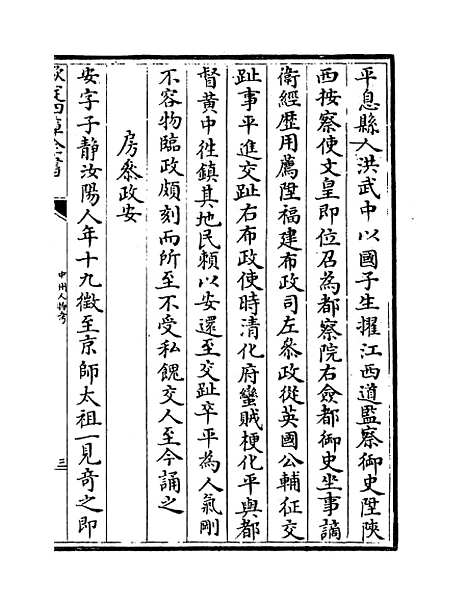 平息縣人洪武中以國子生擢江西道監察御史陞陜
西按察使文皇即位召為都察院右僉都御史坐事謫
衛經歴用薦陞福建布政司左叅政從英國公輔征交
趾事平進交趾右布政使時清化府蠻賊梗化平與都
督黃中徃鎮其地民頼以安還至交趾卒平為人氣剛
不容物臨政頗刻而所至不受私餽交人至今誦之
房叅政安
安字子静汝陽人年十九徴至京師太祖一見竒之即
欽定四庫全書
中州人物考
三